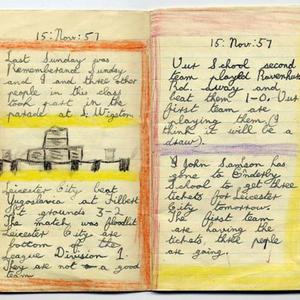 15: Nov: 57
Last Sunday was
Rememberand Sunday
and I and three other
people in this class
took part in the
parade at S. Wigston
Leicester City beat
Yugoslavia at Filbert
St grounds 3-2
The match was floodlit
Leicester City are
bottom of the
League Division 1
They are not a good
team
15: Nov: 57
Our School second
team played Ravenhurst
Rd. away and
beat them 1-0. Our
first team are
playing them (I
think it will be a
draw).
John Samson has
gone to Enderby
School to get three
tickets for Leicester
City tomorrow
The first team
are having the
tickets, three people
are going.